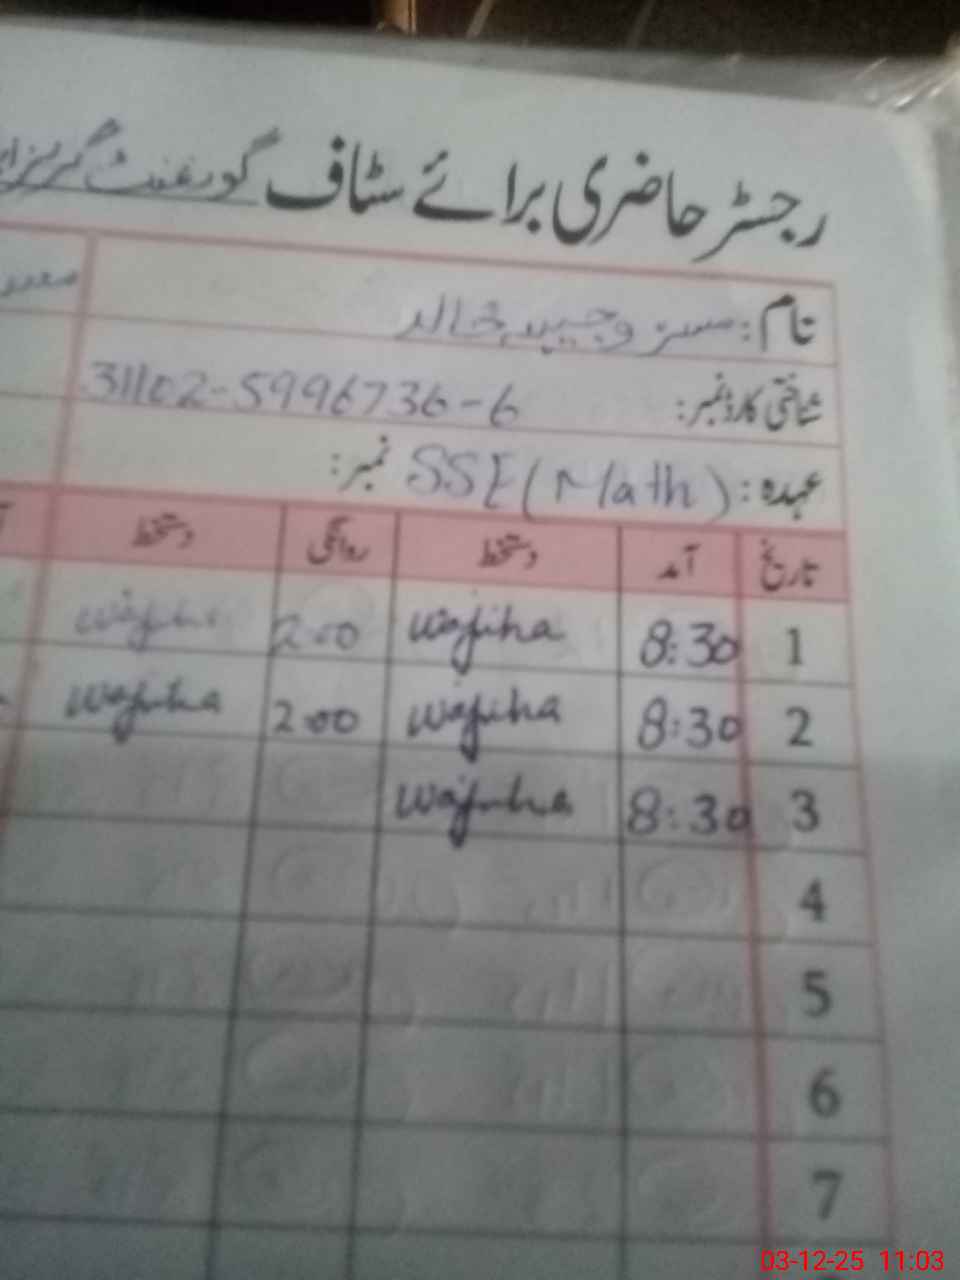 رجسٹر حاضری برائے سٹاف گورنمنٹ گرلز
نام: مسز وجیہہ خالد
شناختی کارڈ نمبر: 31102-5996736-6
عہدہ: SSE (Math) نمبر:
تاریخ آمد دستخط روانگی دستخط
1 8:30 wajiha 2:00 wajiha
2 8:30 wajiha 2:00 wajiha
3 8:30 wajiha
4
5
6
7
03-12-25 11:03